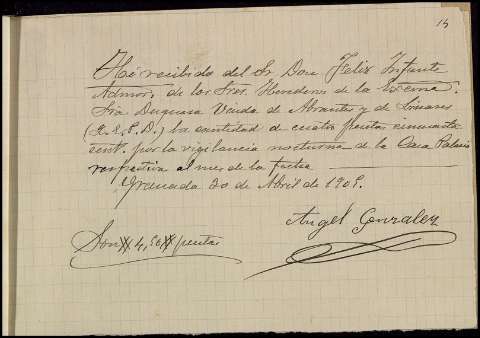 15
He recibido del Sr Don Felix Infante
Admor. de los Sres. Herederos de la Excma.
Sra Duquesa Viuda de Abrantes y de Linares
(Q. E. P. D.) la cantidad de cuatro pesetas cincuenta
cent. por la vigilancia nocturna de la Casa Palacio
respectiva al mes de la fecha
Granada 30 de Abril de 1909.
Angel Gonzalez
Son # 4,50 # pesetas